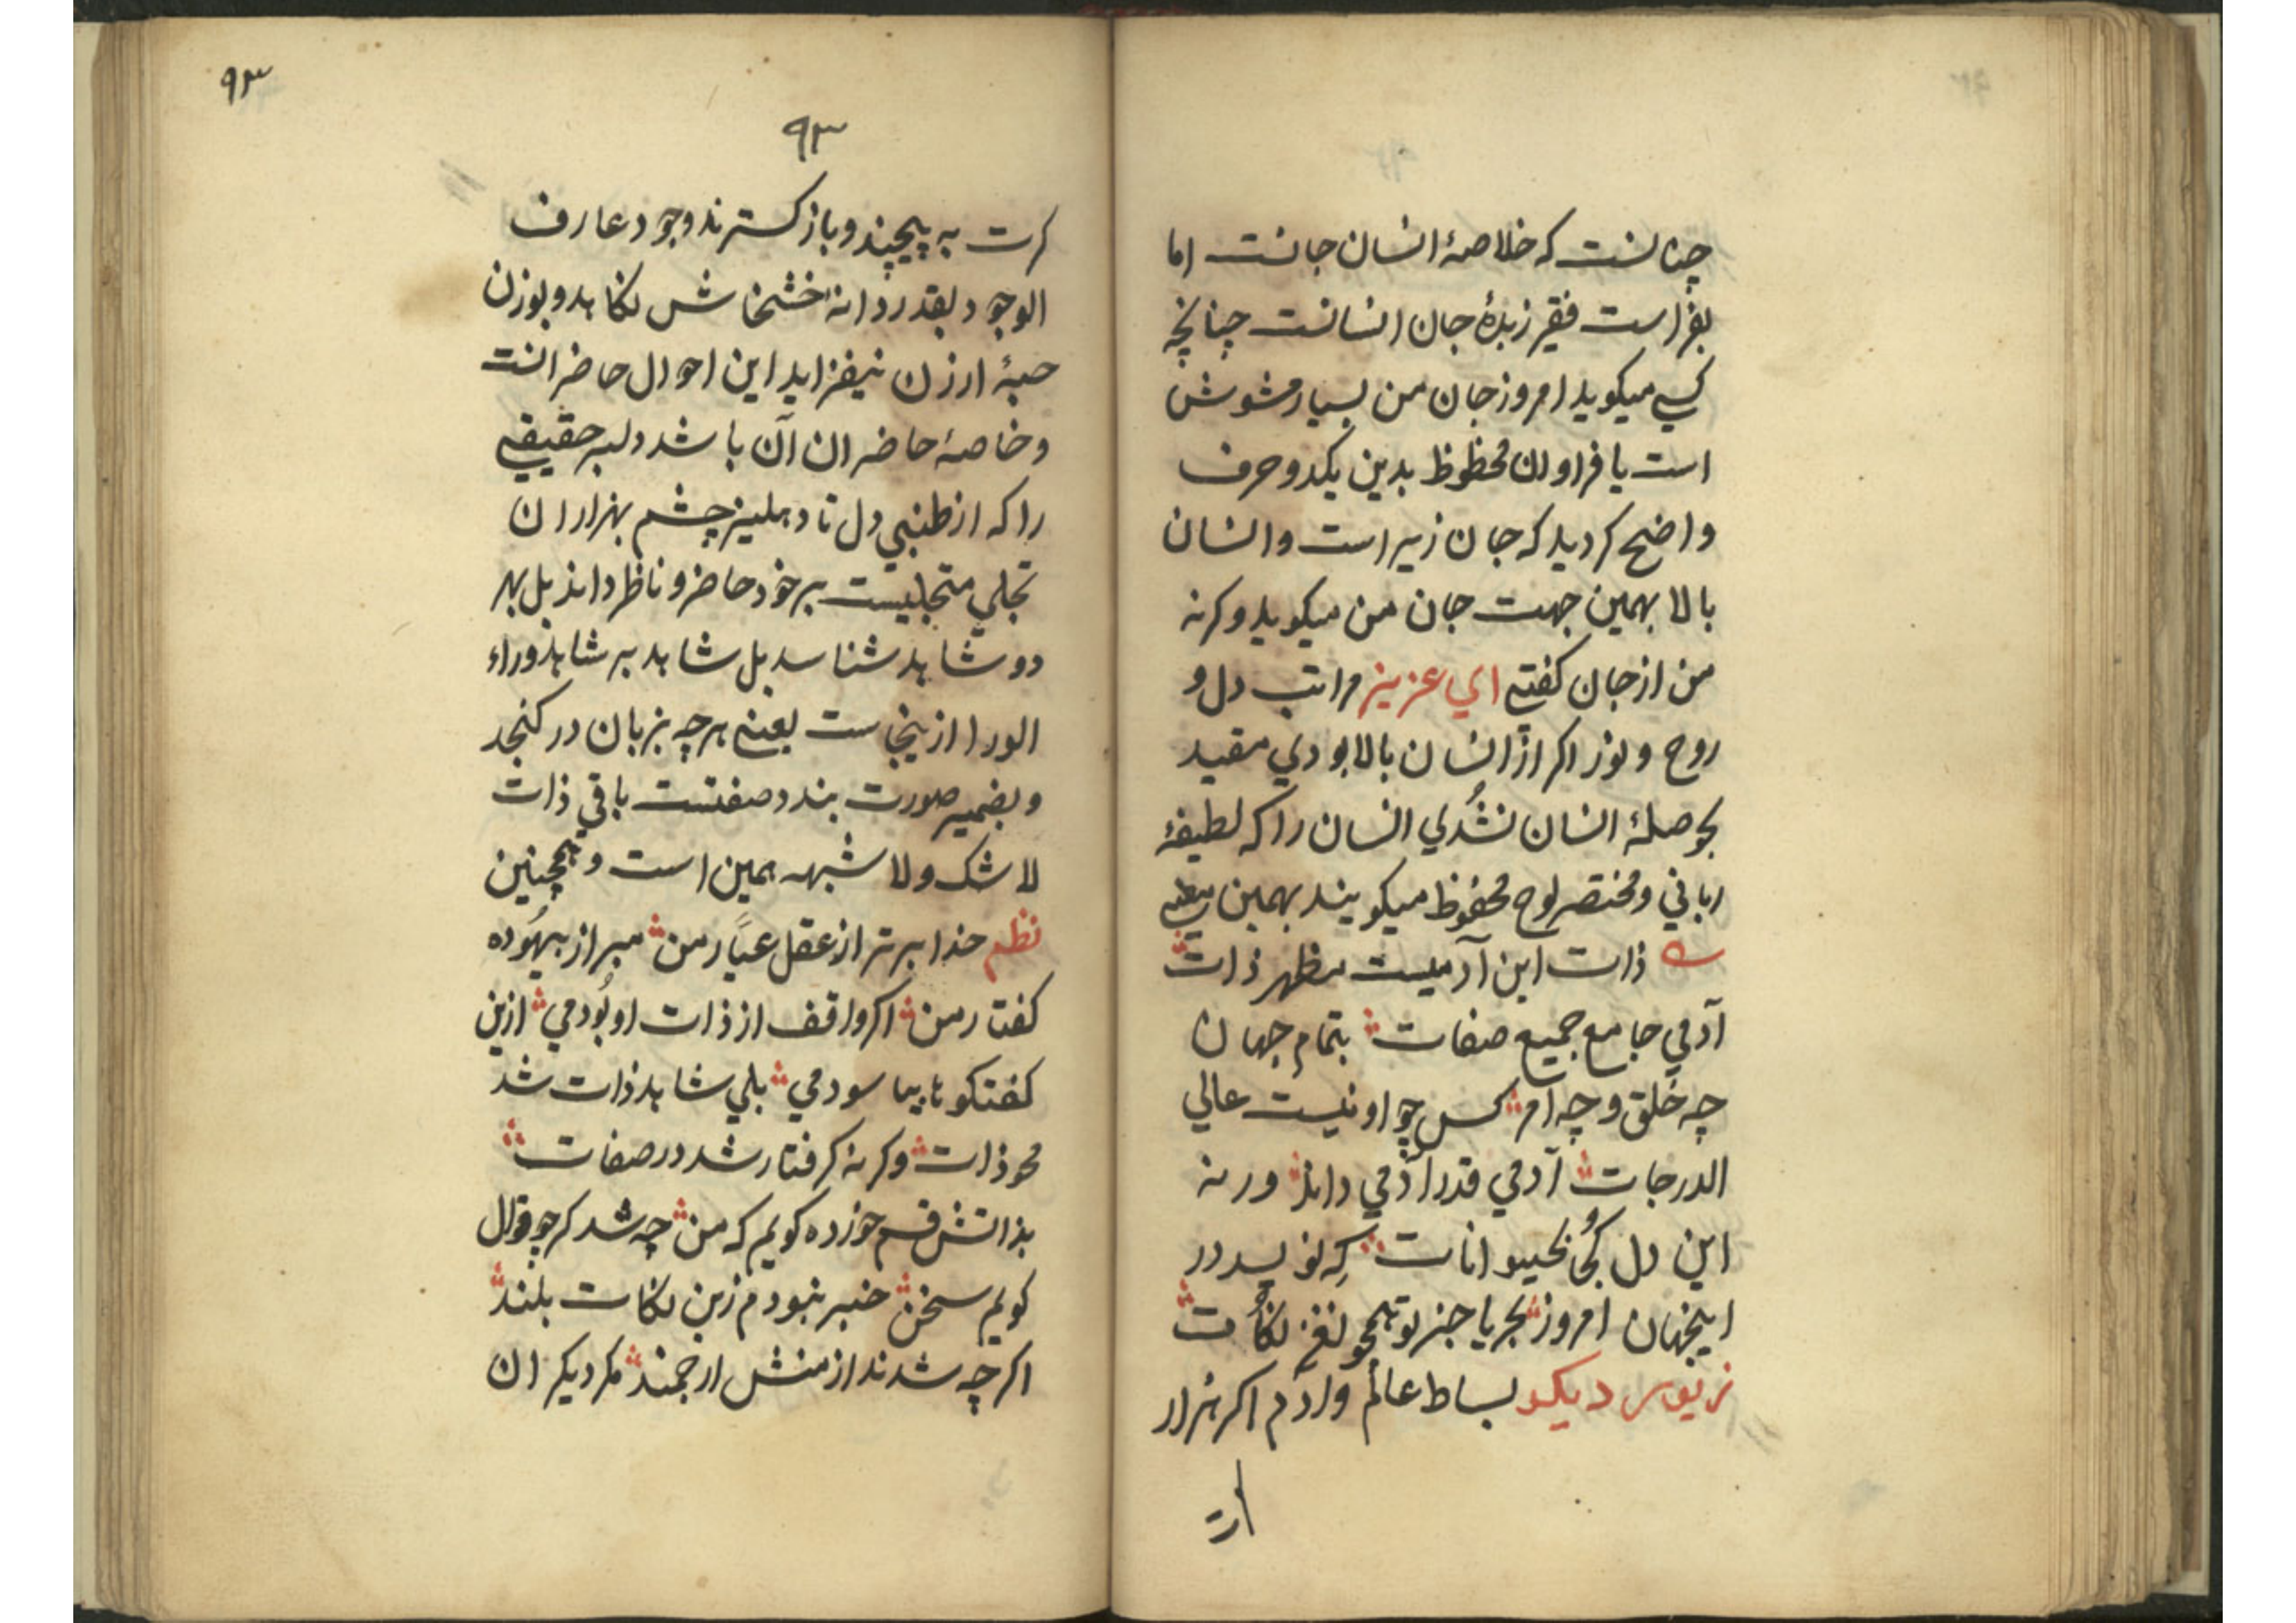 چنانست که خلاصهٔ انسان جانست اما
بفراست فقیر زبدهٔ جان انسانست چنانچه
کسی میکوید امروز جان من بسیار مشوش
است یا فراوان محظوظ بدین یکدو حرف
واضح کردید که جان زیر است و انسان
بالا بهمین جهت جان من میکوید وکرنه
من از جان کفتی ای عزیز مراتب دل و
روح و نور اکر از انسان بالا بودی مقید
بحوصلهٔ انسان نشُدی انسان را که لطیفهٔ
ربانی و مختصر لوح محفوظ میکویند بهمین
ذات این آدمیست مظهر ذات
آدمی جامع جمیع صفات بتمام جهان
چه خلق و چه امر کس چو او نیست عالی
الدرجات آدمی قدر آدمی داند ورنه
این دل کجُی بحیوانات کِه نویسد در
اینجهان امروز بجریا جز تو همچو نغز نکات
بساط عالم و آدم اکر هزار
کرت
۹۳
۹۳
کرت به پیچند و باز کسترند وجود عارف
الوجود بقدر دانهٔ خشخاش نکاهد و بوزن
حبهٔ ارزن نیفزاید این احوال حاضرانست
و خاصهٔ حاضران آن باشد دلبر حقیقی
را که از طنبی دل تا دهلیز چشم بهزاران
تجلی متجلیست بر خود حاضر و ناظر داند بل بهر
دو شاهد شناسد بل شاهد بر شاهد وراء
الورا ازینجاست یعنی هرچه بزبان در کنجد
و بضمیر صورت بندد صفتست باقی ذات
لا شک ولا شبهه همین است و همچنین
نظم خدا برتر از عقل عیار من مبرا ز بیهوده
کفتار من اکر واقف از ذات او بُودمی ازین
کفتکو نا بیاسودمی بلی شاهد ذات شد
محو ذات وکرنه کرفتار شد در صفات
بذاتش قسم خورده کویم که من چه شد کر چو قوال
کویم سخن خبر نبودم زین نکات بلند
اکرچه شدند از منش ارجمند مکر دیکران